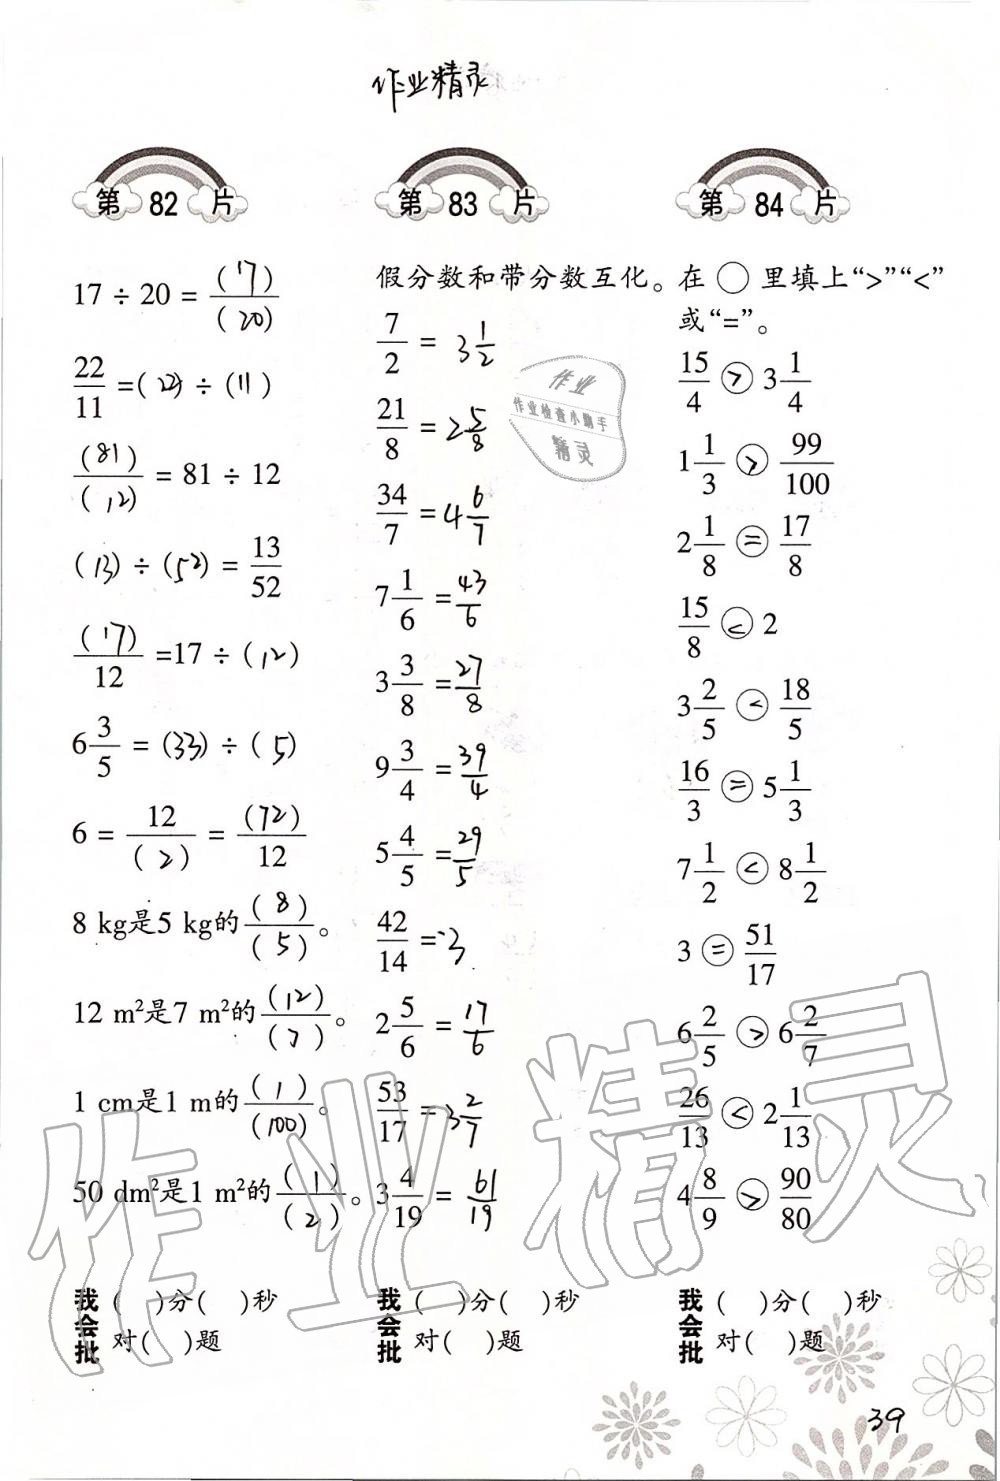 作业精灵
第 82 片
17 ÷ 20 = (17)/(20)
22/11 =(22) ÷ (11)
(81)/(12) = 81 ÷ 12
(13) ÷ (52) = 13/52
(17)/12 =17 ÷ (12)
6 3/5 = (33) ÷ (5)
6 = 12/(2) = (72)/12
8 kg是5 kg的(8)/(5)。
12 m²是7 m²的(12)/(7)。
1 cm是1 m的(1)/(100)。
50 dm²是1 m²的(1)/(2)。
我会批 ( )分( )秒
对( )题
第 83 片
假分数和带分数互化。
7/2 = 3 1/2
21/8 = 2 5/8
34/7 = 4 6/7
7 1/6 = 43/6
3 3/8 = 27/8
9 3/4 = 39/4
5 4/5 = 29/5
42/14 = 3
2 5/6 = 17/6
53/17 = 3 2/7
3 4/19 = 61/19
我会批 ( )分( )秒
对( )题
第 84 片
在 ○ 里填上“>”“<”
或“=”。
15/4 > 3 1/4
1 1/3 > 99/100
2 1/8 = 17/8
15/8 < 2
3 2/5 < 18/5
16/3 = 5 1/3
7 1/2 < 8 1/2
3 = 51/17
6 2/5 > 6 2/7
26/13 < 2 1/13
4 8/9 > 90/80
我会批 ( )分( )秒
对( )题
作业
作业检查小助手
精灵
作业精灵
39